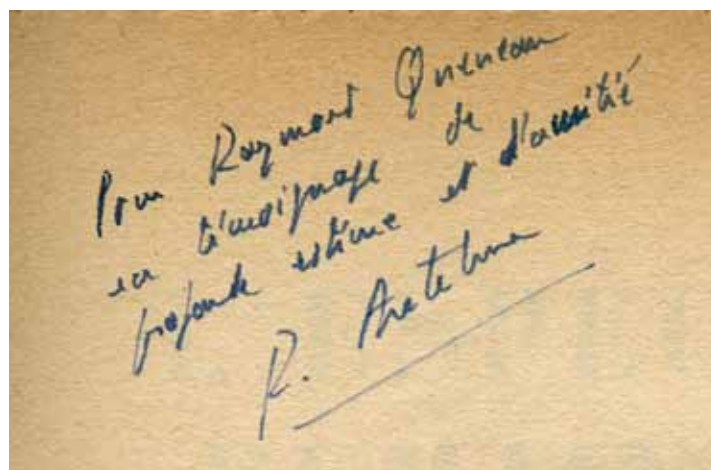 Pour Raymond Queneau
en témoignage de
profonde estime et d'amitié
R.